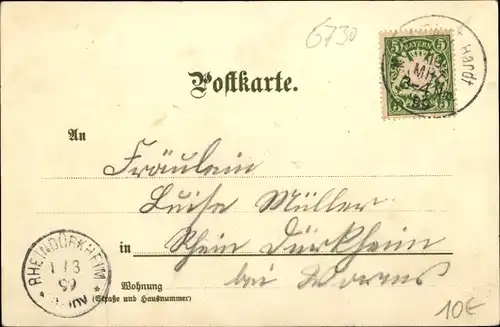 6730
5 BAYERN 5
Hardt
Postkarte.
8-4
An
Fräulein
Luise Müller
in Rhein Dürkheim
bei Worms
RHEINDÜRKHEIM
Wohnung
(Straße und Hausnummer)
10€